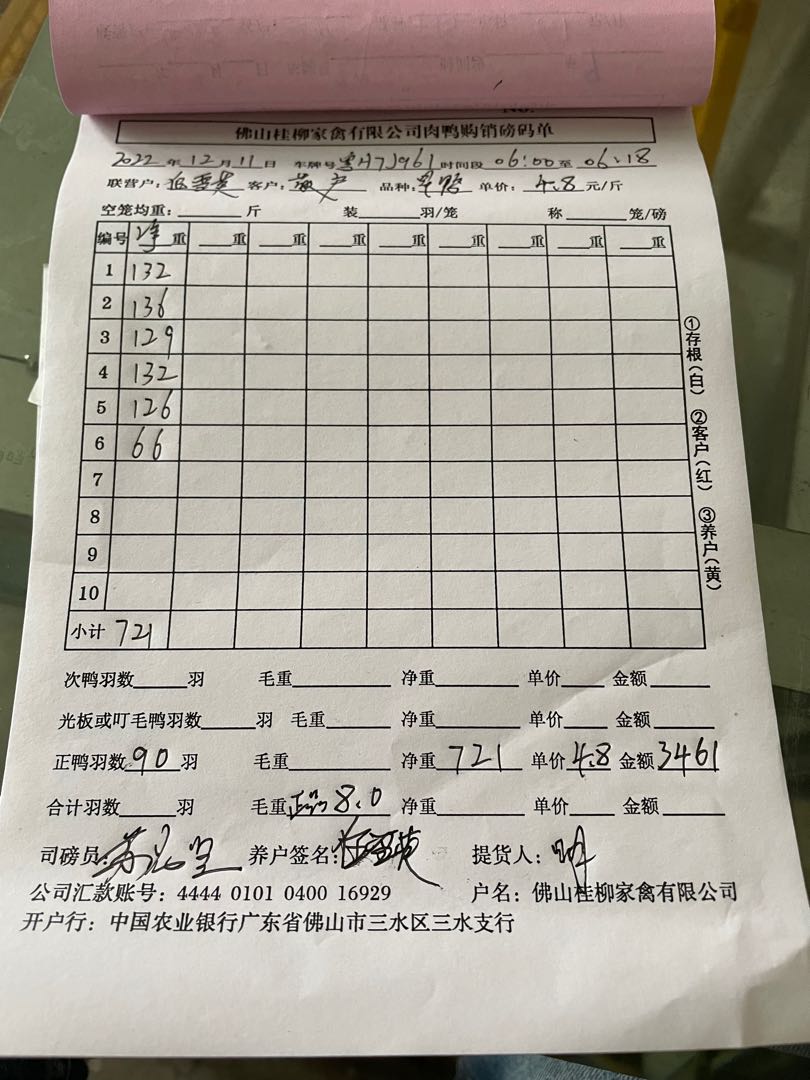 佛山桂柳家禽有限公司肉鸭购销磅码单
2022年12月11日 车牌号粤A7J961时间段06:00至06:18
联营户: 客户:散户 品种: 单价:4.8元/斤
空笼均重:斤 装羽/笼 称笼/磅
编号 净重 重 重 重 重 重 重 重 重
1 132
2 136
3 129
4 132
5 126
6 66
7
8
9
10
小计 721
①存根(白) ②客户(红) ③养户(黄)
次鸭羽数羽 毛重 净重 单价 金额
光板或叮毛鸭羽数羽 毛重 净重 单价 金额
正鸭羽数90羽 毛重 净重721 单价4.8 金额3461
合计羽数羽 毛重 8.0 净重 单价 金额
司磅员: 养户签名: 提货人:
公司汇款账号:4444 0101 0400 16929 户名:佛山桂柳家禽有限公司
开户行:中国农业银行广东省佛山市三水区三水支行